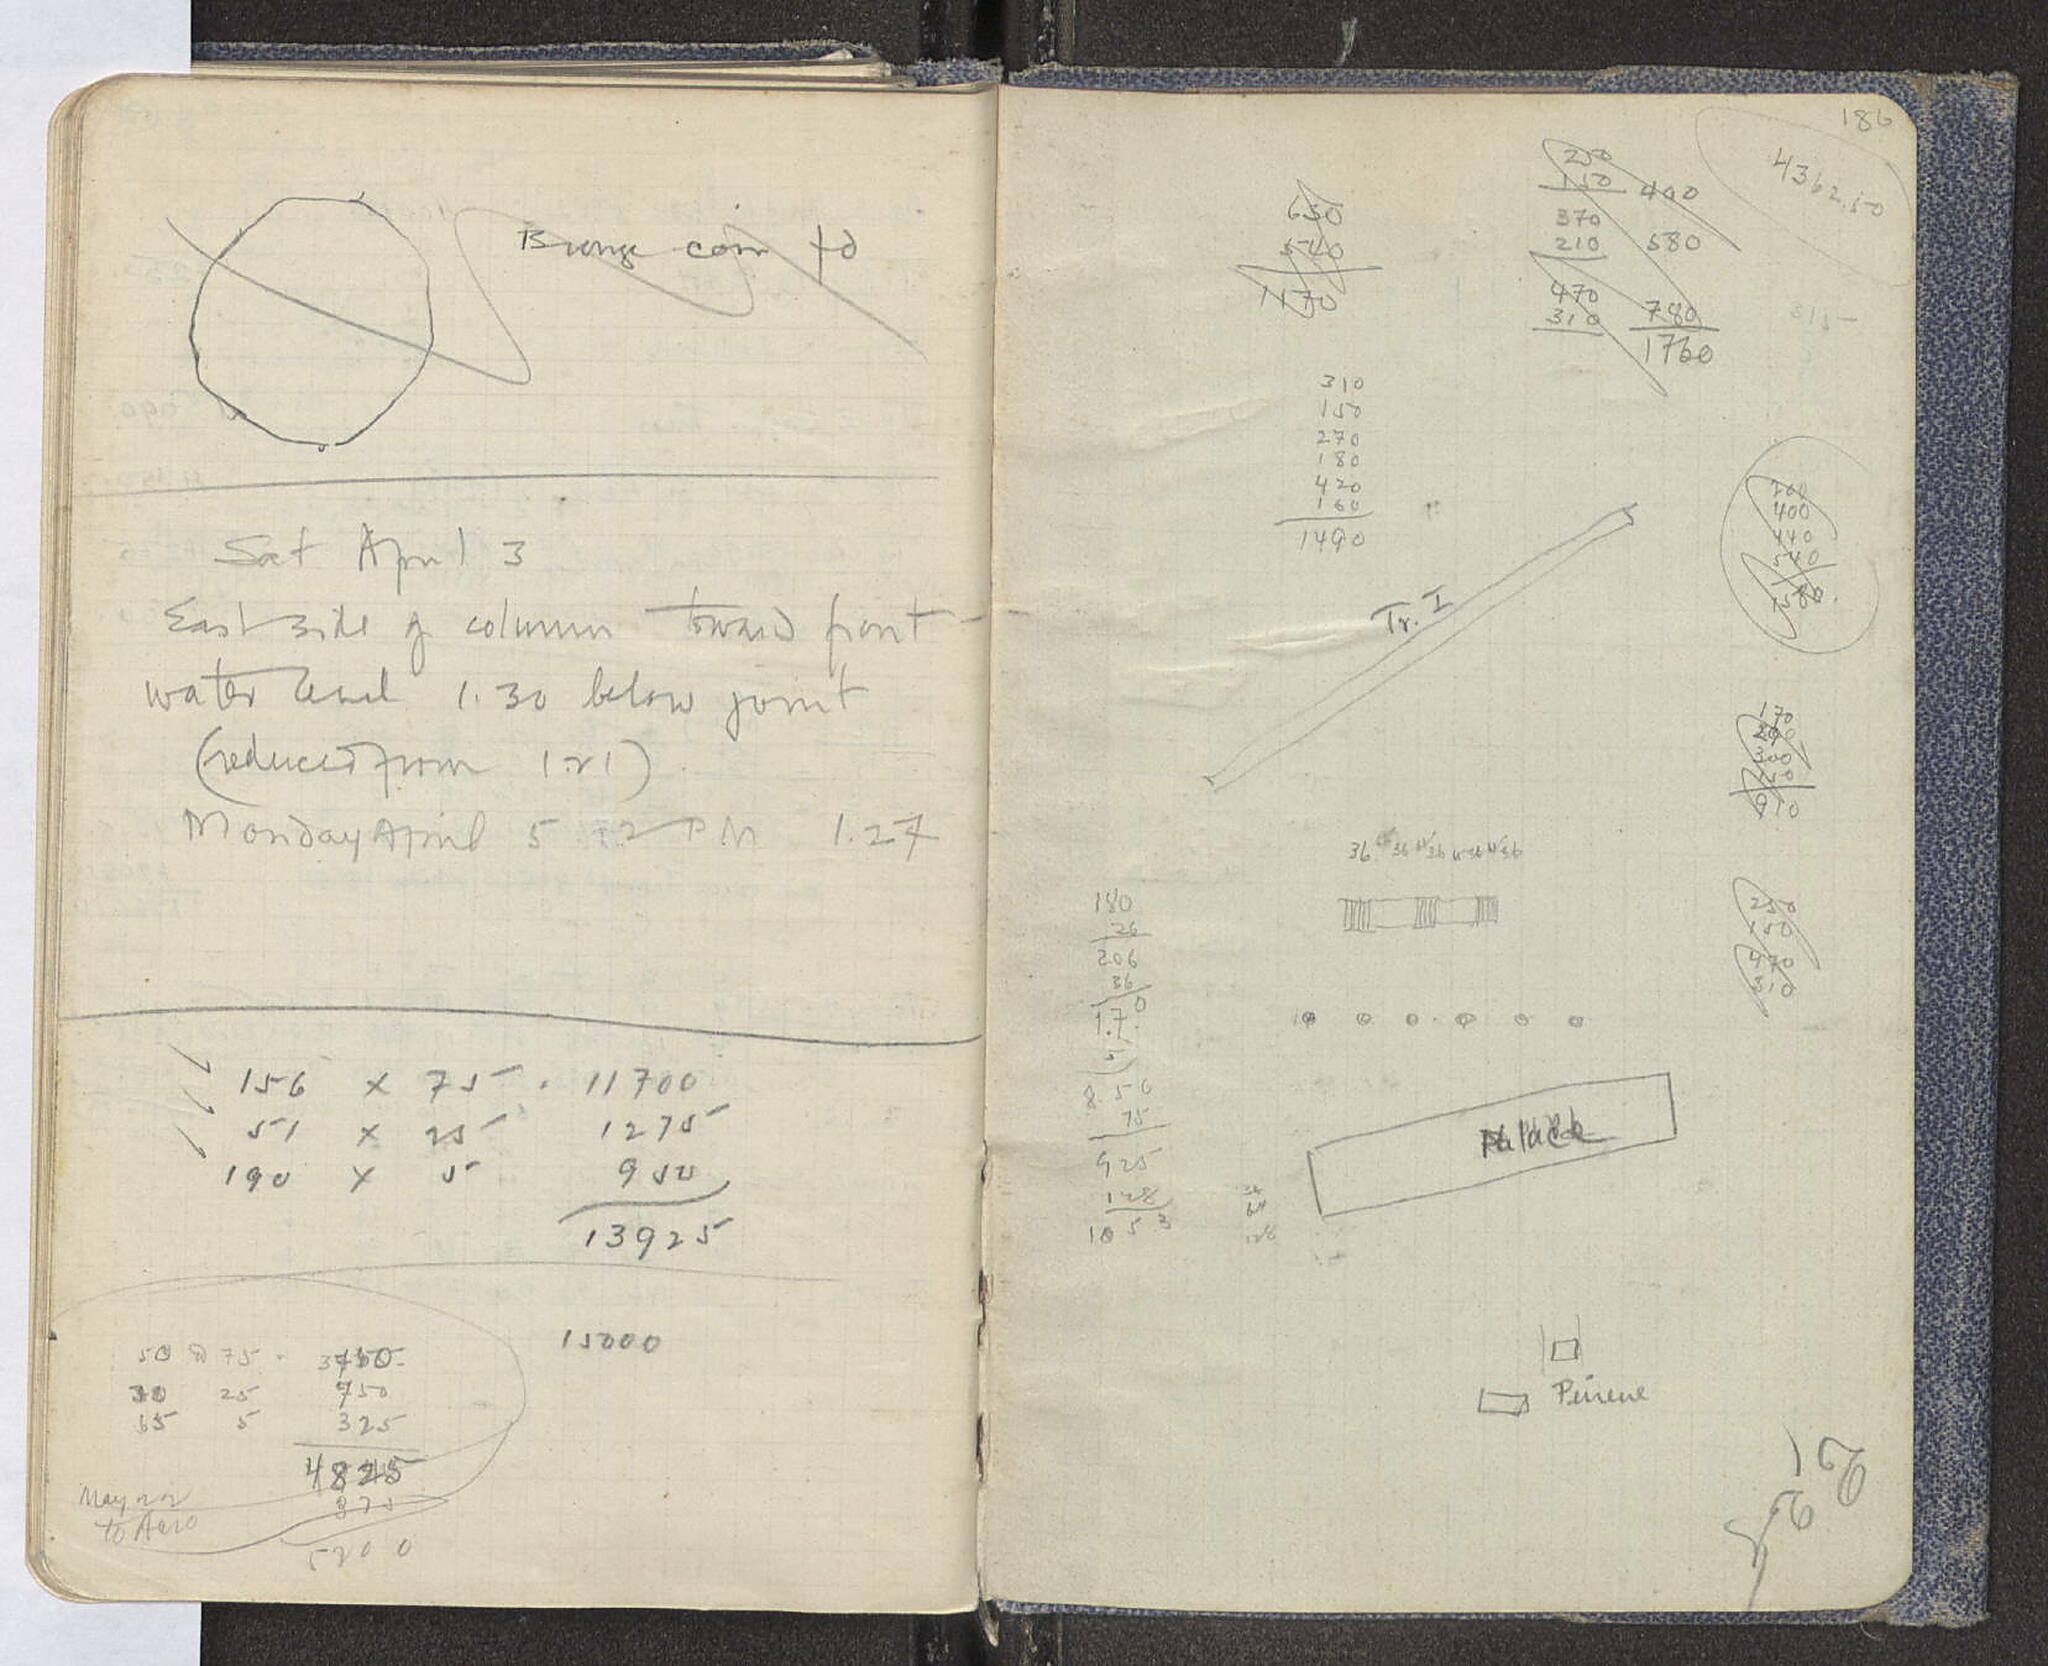 Bronze coin
Sat April 3
East side of column toward front
water level 1.30 below joint
(reduced from 1.21)
Monday April 5 PM 1.27
156 x 75 . 11700
51 x 25 1275
190 x 5 950
13925
15000
50 @ 75 . 3750
30 25 750
65 5 325
4825
375
5200
May 22
to Aero
186
4362.50
650
540
1170
250
150 400
370
210 580
470
310 780
1760
315
310
150
270
180
420
160
1490
Tr. I
400
440
540
170
300
910
250
150
470
310
180
26
206
36
1.70
5
8.50
75
925
128
1053
64
128
Palace
Peirene